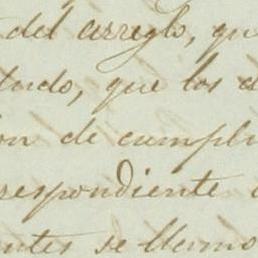 del arreglo, qu
tudo, que los d
ón de cumpli
respondiente
ntes se llamo